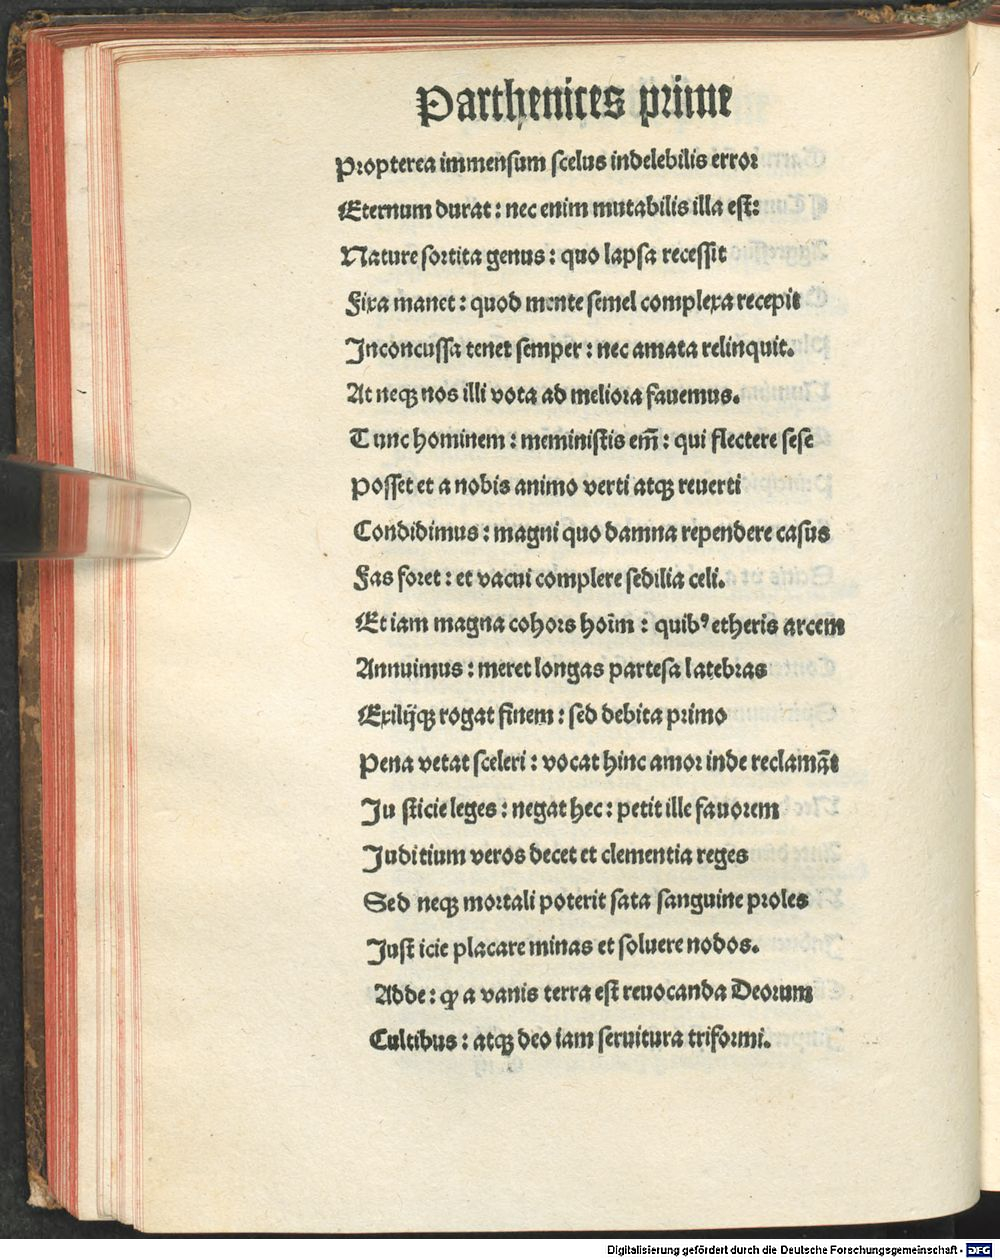 Parthenices prime
Propterea immensum scelus indelebilis error
Eternum durat: nec enim mutabilis illa est:
Nature sortita genus: quo lapsa recessit
Fixa manet: quod mente semel complexa recepit
Inconcussa tenet semper: nec amata relinquit.
At neqꝫ nos illi vota ad meliora fauemus.
Tunc hominem: meministis em̃: qui flectere sese
Posset et a nobis animo verti atqꝫ reuerti
Condidimus: magni quo damna rependere casus
Fas foret: et vacui complere sedilia celi.
Et iam magna cohors hoīm: quibꝰ etheris arcem
Annuimus: meret longas partesa latebras
Exilijqꝫ rogat finem: sed debita primo
Pena vetat sceleri: vocat hinc amor inde reclamāt
Ju sticie leges: negat hec: petit ille fauorem
Juditium veros decet et clementia reges
Sed neqꝫ mortali poterit sata sanguine proles
Just icie placare minas et soluere nodos.
Adde: ꝙ a vanis terra est reuocanda Deorum
Cultibus: atqꝫ deo iam seruitura triformi.
Digitalisierung gefördert durch die Deutsche Forschungsgemeinschaft - DFG